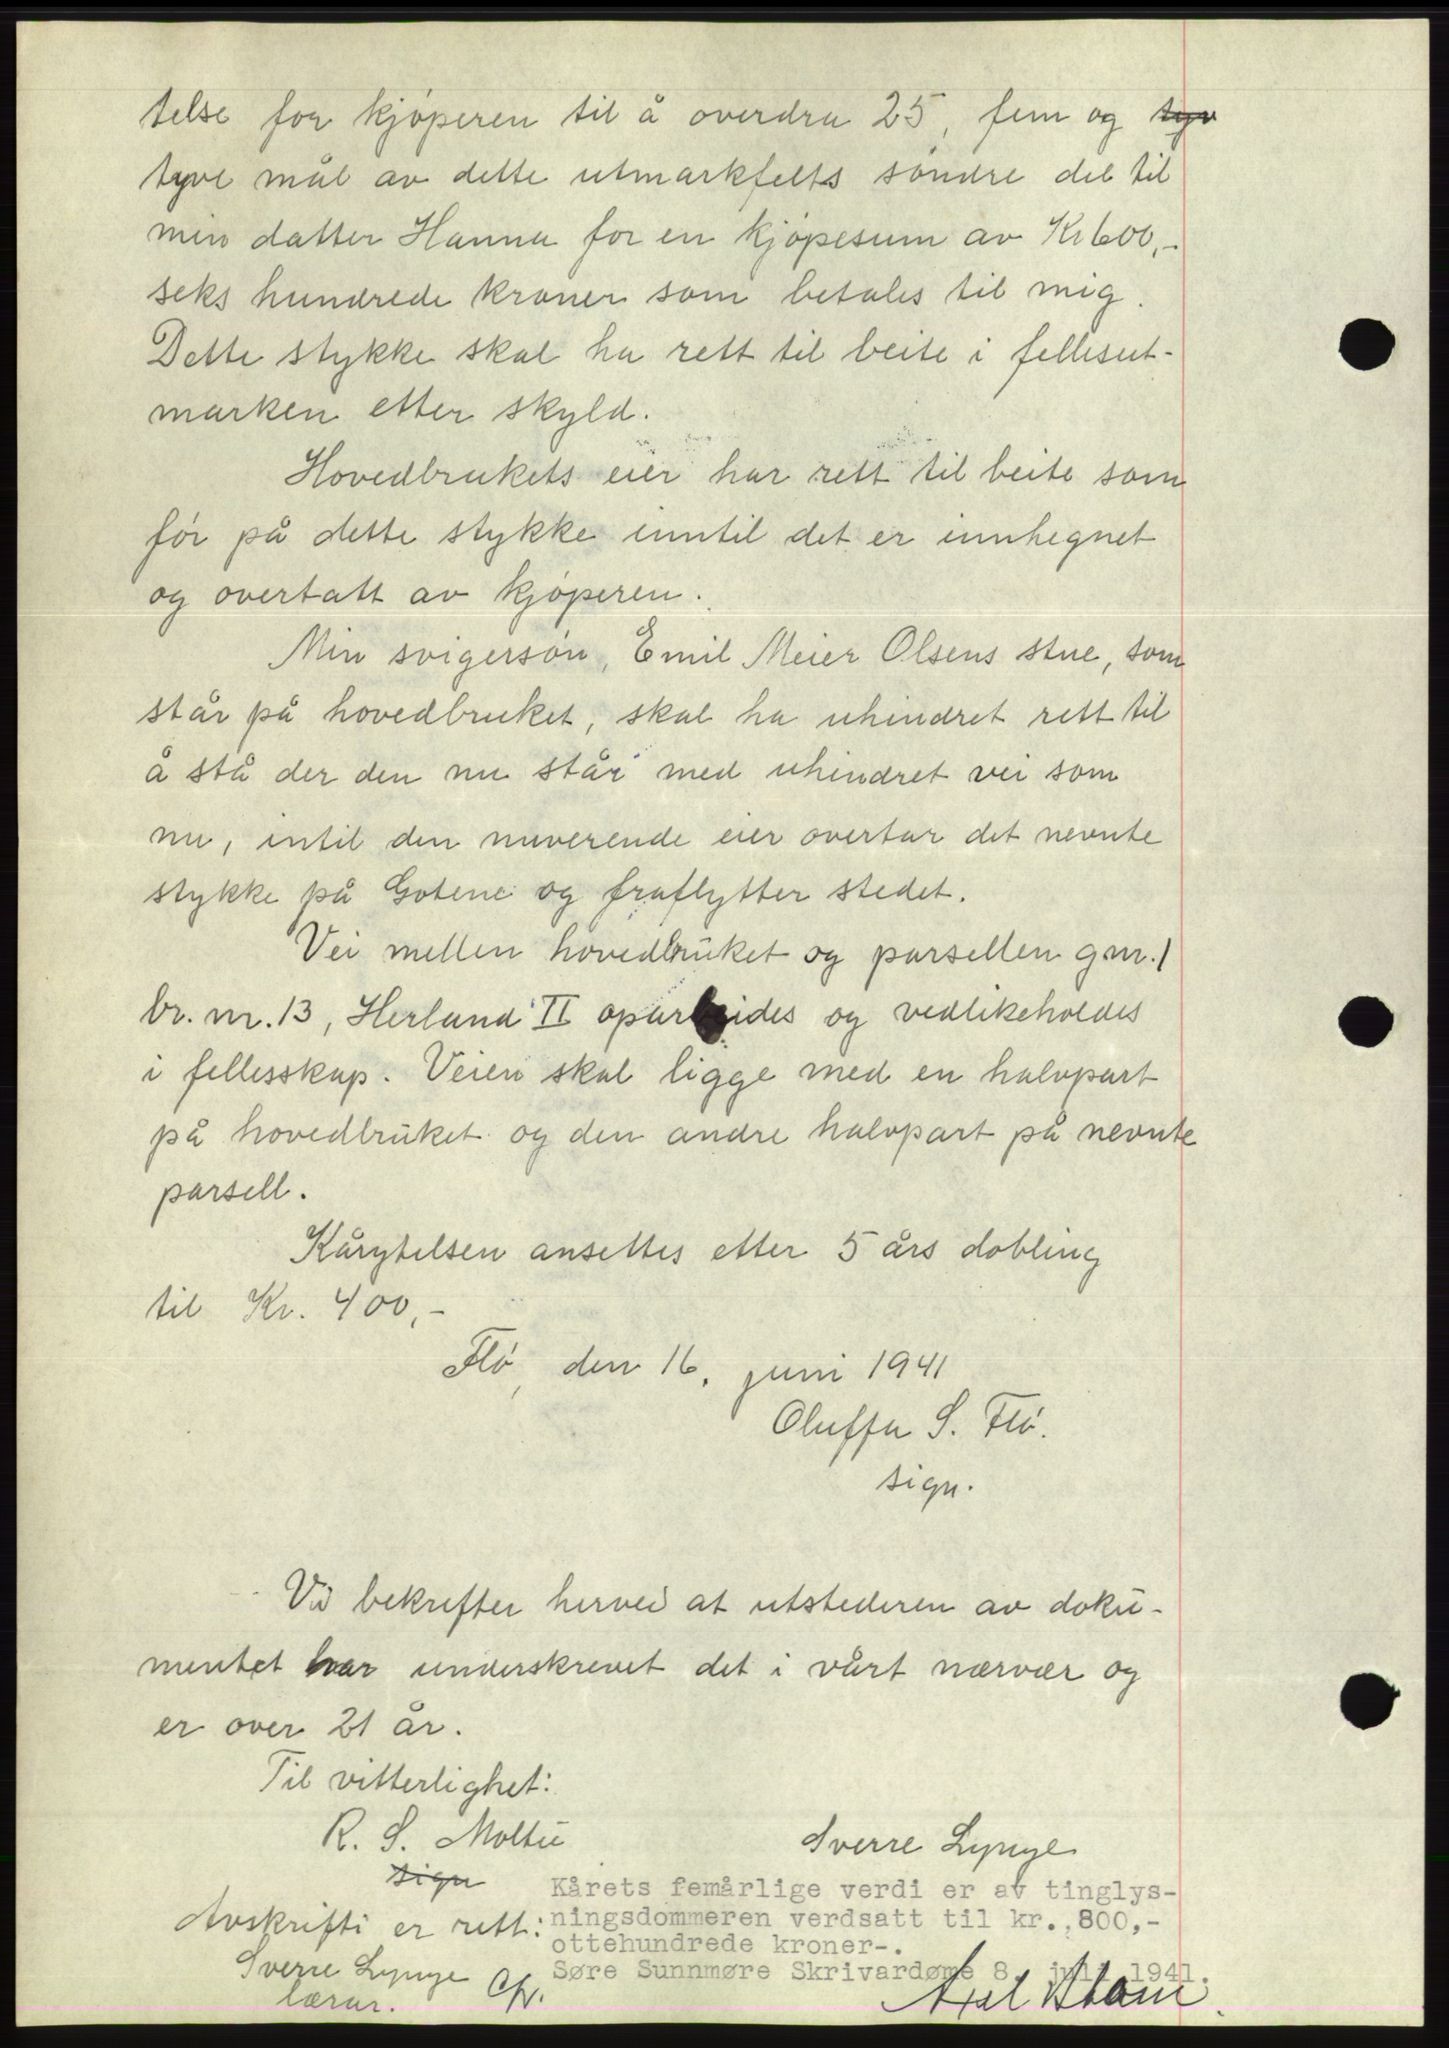 telse for kjøperen til å overdra 25, fem og tyv
tyve mål av dette utmarkfelts søndre del til
min datter Hanna for en kjøpesum av Kr 600,-
seks hundrede kroner som betales til mig.
Dette stykke skal ha rett til beite i fellesut-
marken etter skyld.
Hovedbrukets eier har rett til beite som
før på dette stykke inntil det er innhegnet
og overtatt av kjøperen.
Min svigersøn, Emil Meier Olsens stue, som
står på hovedbruket, skal ha uhindret rett til
å stå der den nu står med uhindret vei som
nu, intil den nuverende eier overtar det nevnte
stykke på Gotene og fraflytter stedet.
Vei mellen hovedbruket og parsellen gnr. 1
br. nr. 13, Herland II oparbeides og vedlikeholdes
i fellesskap. Veien skal ligge med en halvpart
på hovedbruket og den andre halvpart på nevnte
parsell.
Kårytelsen ansettes etter 5 års dobling
til Kr. 400,-
Flø, den 16. juni 1941
Oluffa S. Flø.
sign.
Vi bekrefter herved at utstederen av doku-
mentet har underskrevet det i vårt nærvær og
er over 21 år.
Til vitterlighet:
R. S. Moltu
Sverre Lynge
sign
Kårets femårlige verdi er av tinglys-
ningsdommeren verdsatt til kr. 800,-
ottehundrede kroner-.
Søre Sunnmøre Skrivardøme 8. juli 1941.
Avskrifti er rett:
Sverre Lynge
lærar.
Axel